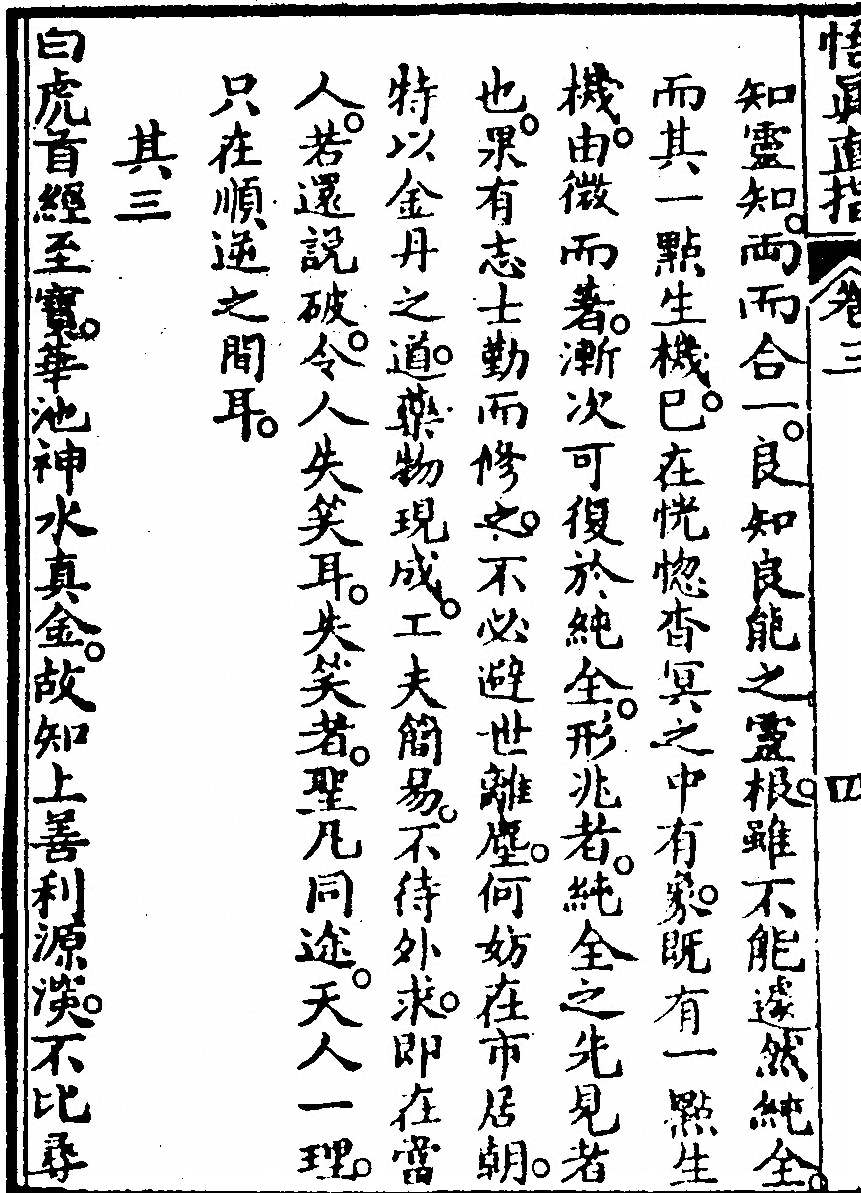 悟真直指 卷三 四
知靈知。兩而合一。良知良能之靈根。雖不能遽然純全。
而其一點生機。已在恍惚杳冥之中有象。既有一點生
機。由微而著。漸次可復於純全。形兆者。純全之先見者
也。果有志士勤而修之。不必避世離塵。何妨在市居朝。
特以金丹之道。藥物現成。工夫簡易。不待外求。即在當
人。若還說破。令人失笑耳。失笑者。聖凡同途。天人一理。
只在順逆之間耳。
其三
白虎首經至寶。華池神水真金。故知上善利源深。不比尋